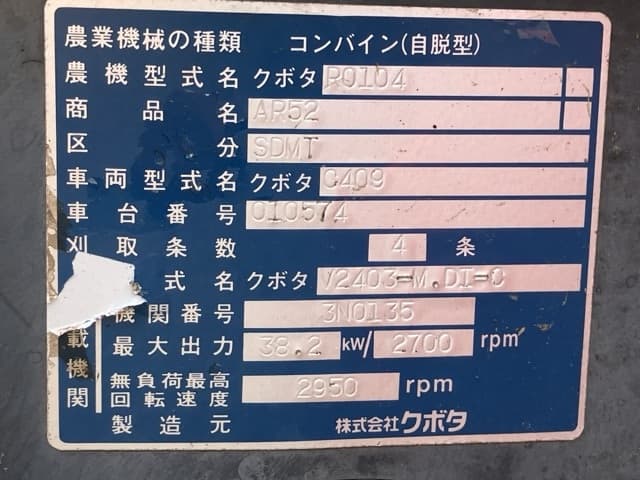 農業機械の種類 コンバイン(自脱型)
農機型式名 クボタ R0104
商品名 AR52
区分 SDMT
車両型式名 クボタ C409
車台番号 010574
刈取条数 4 条
式名 クボタ V2403=M.DI=C
機関番号 3N0135
載 最大出力 38.2 kW/ 2700 rpm
機 無負荷最高
関 回転速度 2950 rpm
製造元 株式会社クボタ